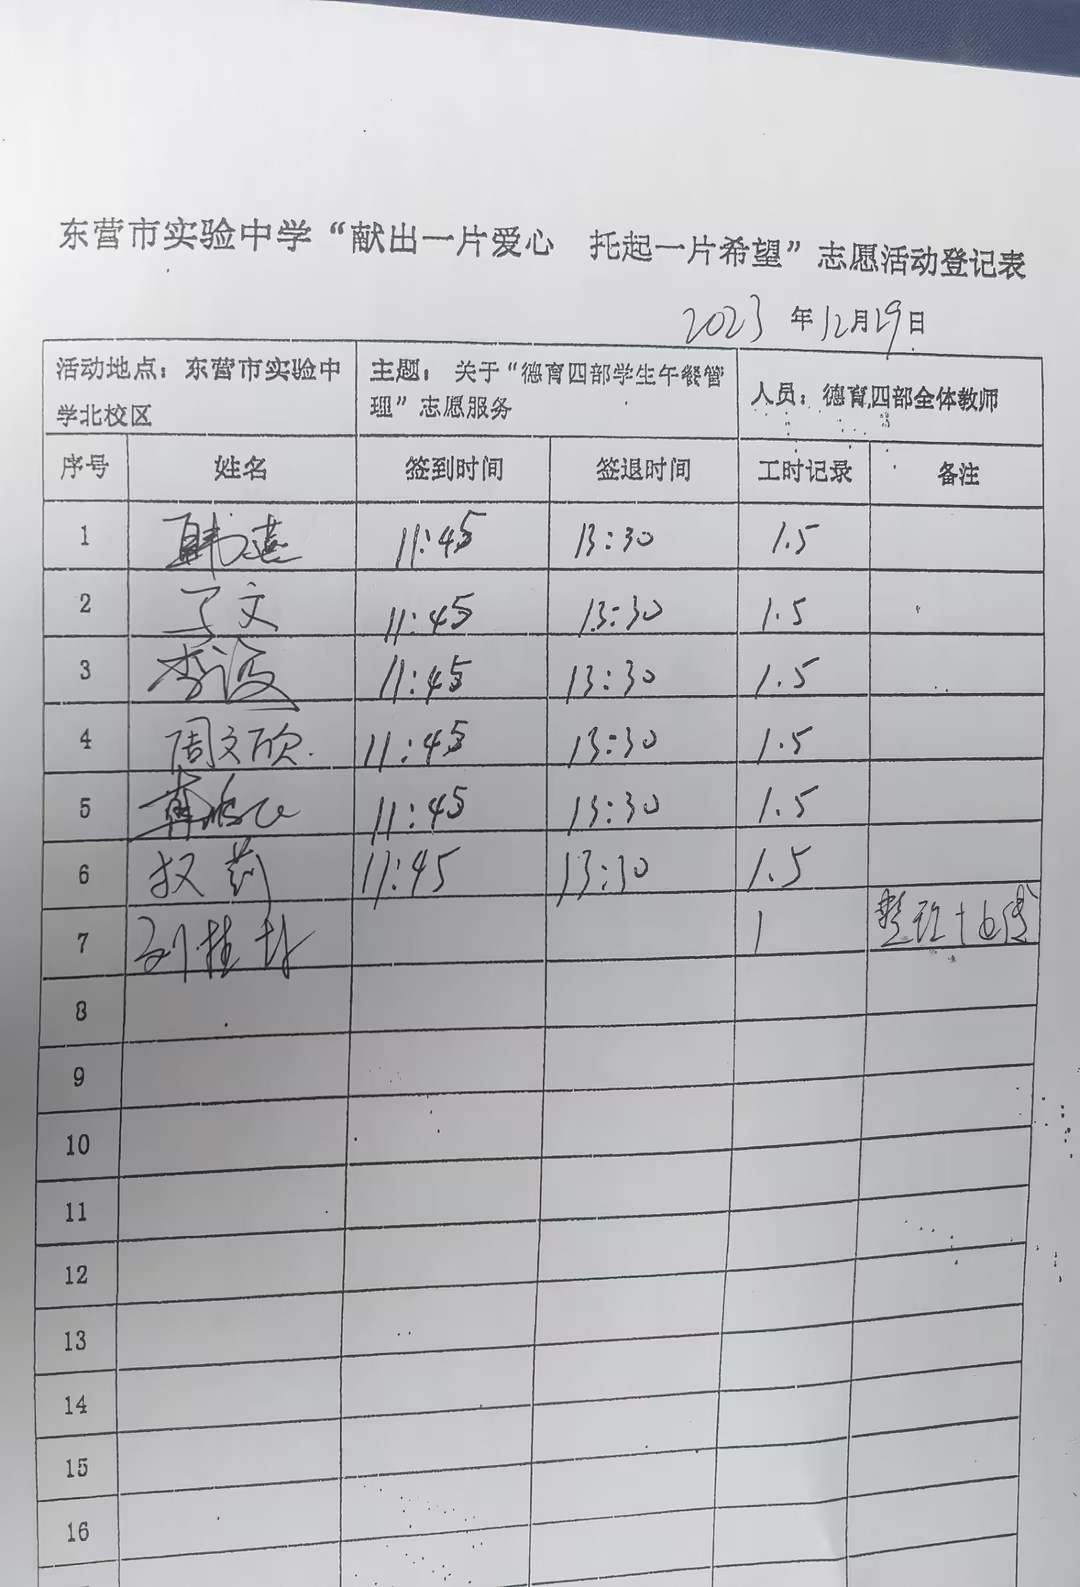 东营市实验中学“献出一片爱心 托起一片希望”志愿活动登记表
2023年12月29日
活动地点：东营市实验中学北校区 主题：关于“德育四部学生午餐管理”志愿服务 人员：德育四部全体教师
序号 姓名 签到时间 签退时间 工时记录 备注
1 11:45 13:30 1.5
2 丁文 11:45 13:30 1.5
3 李 11:45 13:30 1.5
4 周文欣 11:45 13:30 1.5
5 11:45 13:30 1.5
6 权莉 11:45 13:30 1.5
7 刘桂 1
8
9
10
11
12
13
14
15
16